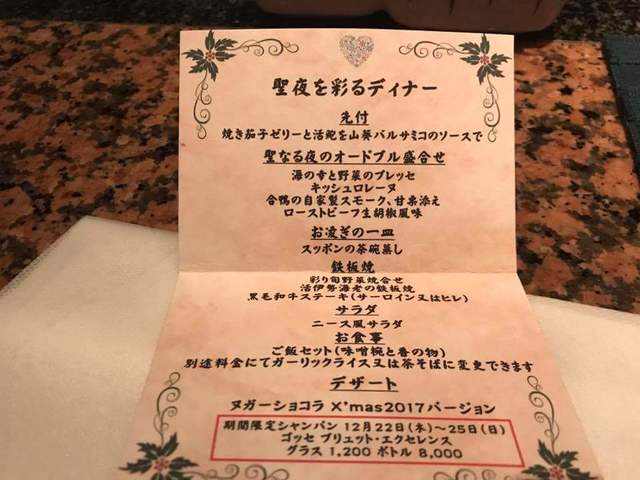 聖夜を彩るディナー
先付
焼き茄子ゼリーと活鮑を山葵バルサミコのソースで
聖なる夜のオードブル盛合せ
海の幸と野菜のプレッセ
キッシュロレーヌ
合鴨の自家製スモーク、甘菜添え
ローストビーフ生胡椒風味
お凌ぎの一皿
スッポンの茶碗蒸し
鉄板焼
彩り旬野菜焼合せ
活伊勢海老の鉄板焼
黒毛和牛ステーキ(サーロイン又はヒレ)
サラダ
ニース風サラダ
お食事
ご飯セット(味噌椀と香の物)
別途料金にてガーリックライス又は茶そばに変更できます
デザート
ヌガーショコラ X'mas2017バージョン
期間限定シャンパン 12月22日(木)~25日(日)
ゴッセ ブリュット・エクセレンス
グラス 1,200 ボトル 8,000